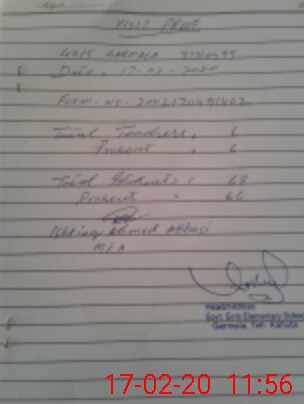 VISIT PROOF
GGES GARMALA
Date. 17-02-2020
FORM-NO-
Total Teachers. 6
Present . 6
Total Students: 68
Present . 66
Ishtiaq Ahmed Abbasi
MEA
Headmistress
Govt. Girls Elementary School
Garmala Teh. Kahuta
17-02-20 11:56